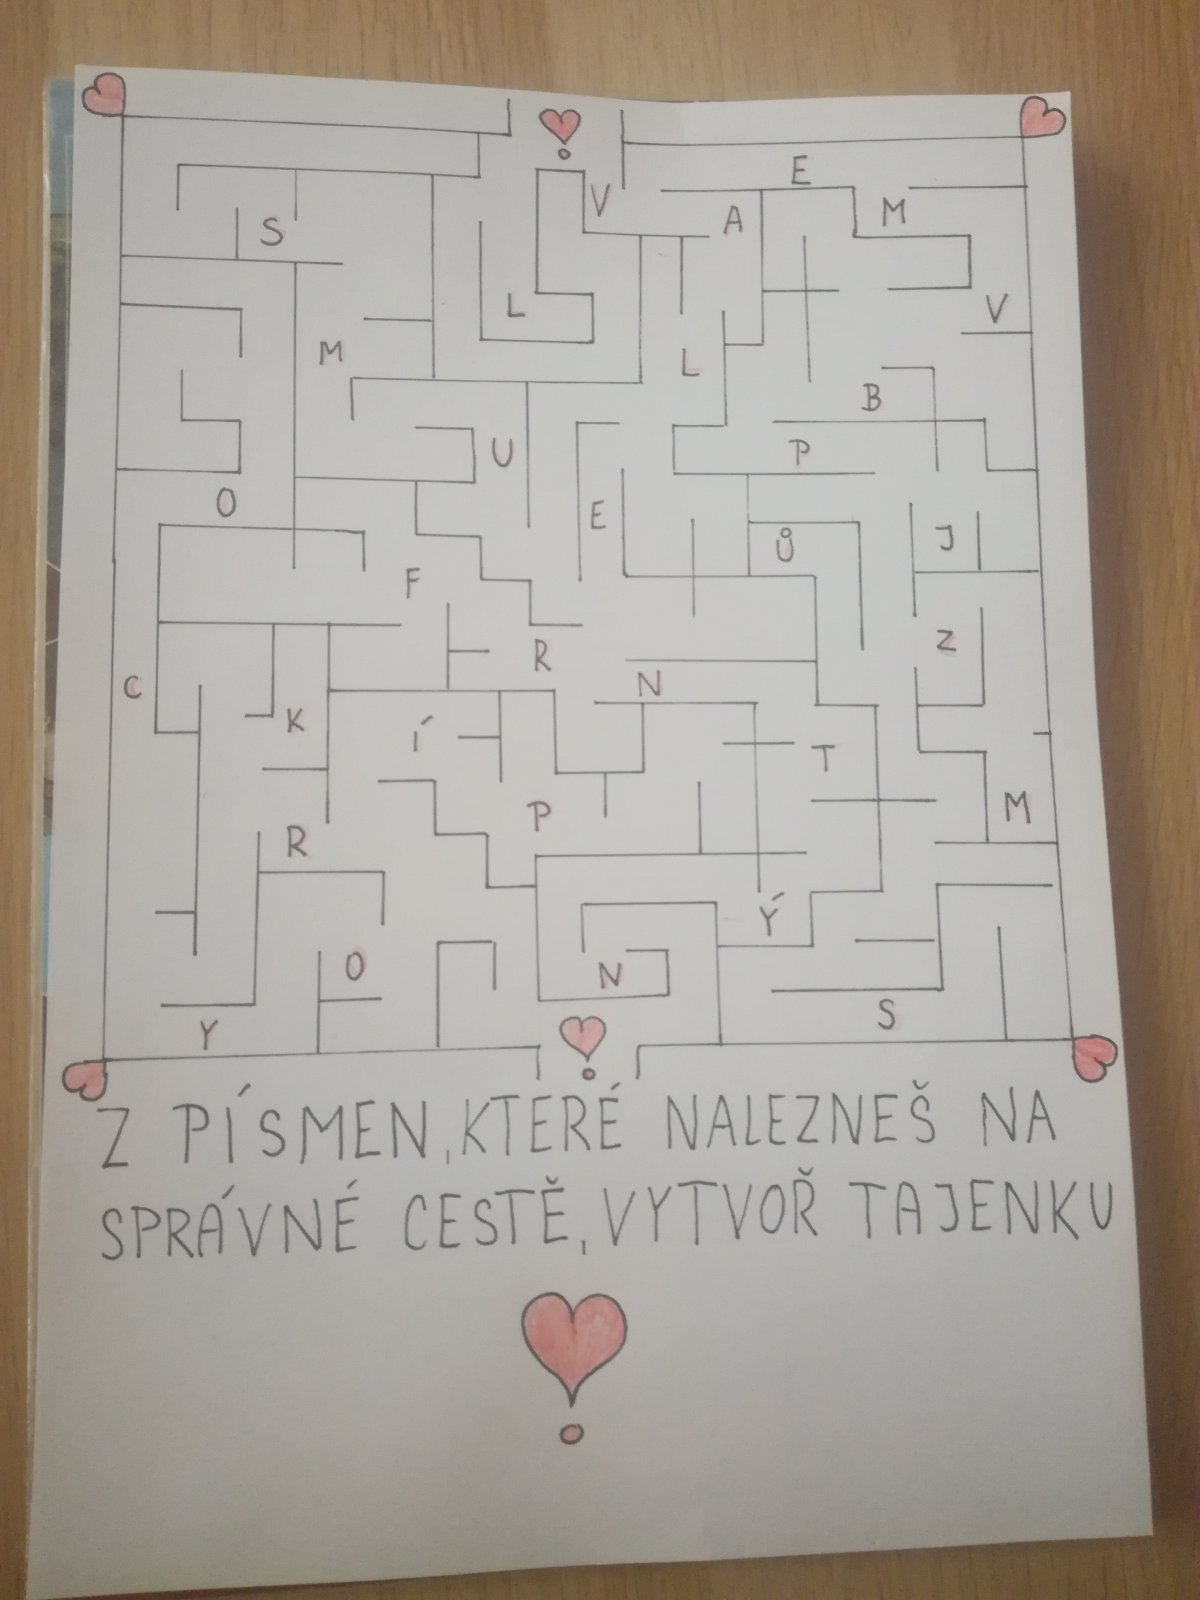 E
V
A
M
S
L
V
M
L
B
U
P
O
E
Ů
J
F
Z
R
C
N
K
Í
T
P
M
R
Ý
O
N
S
Y
Z PÍSMEN, KTERÉ NALEZNEŠ NA
SPRÁVNÉ CESTĚ, VYTVOŘ TAJENKU